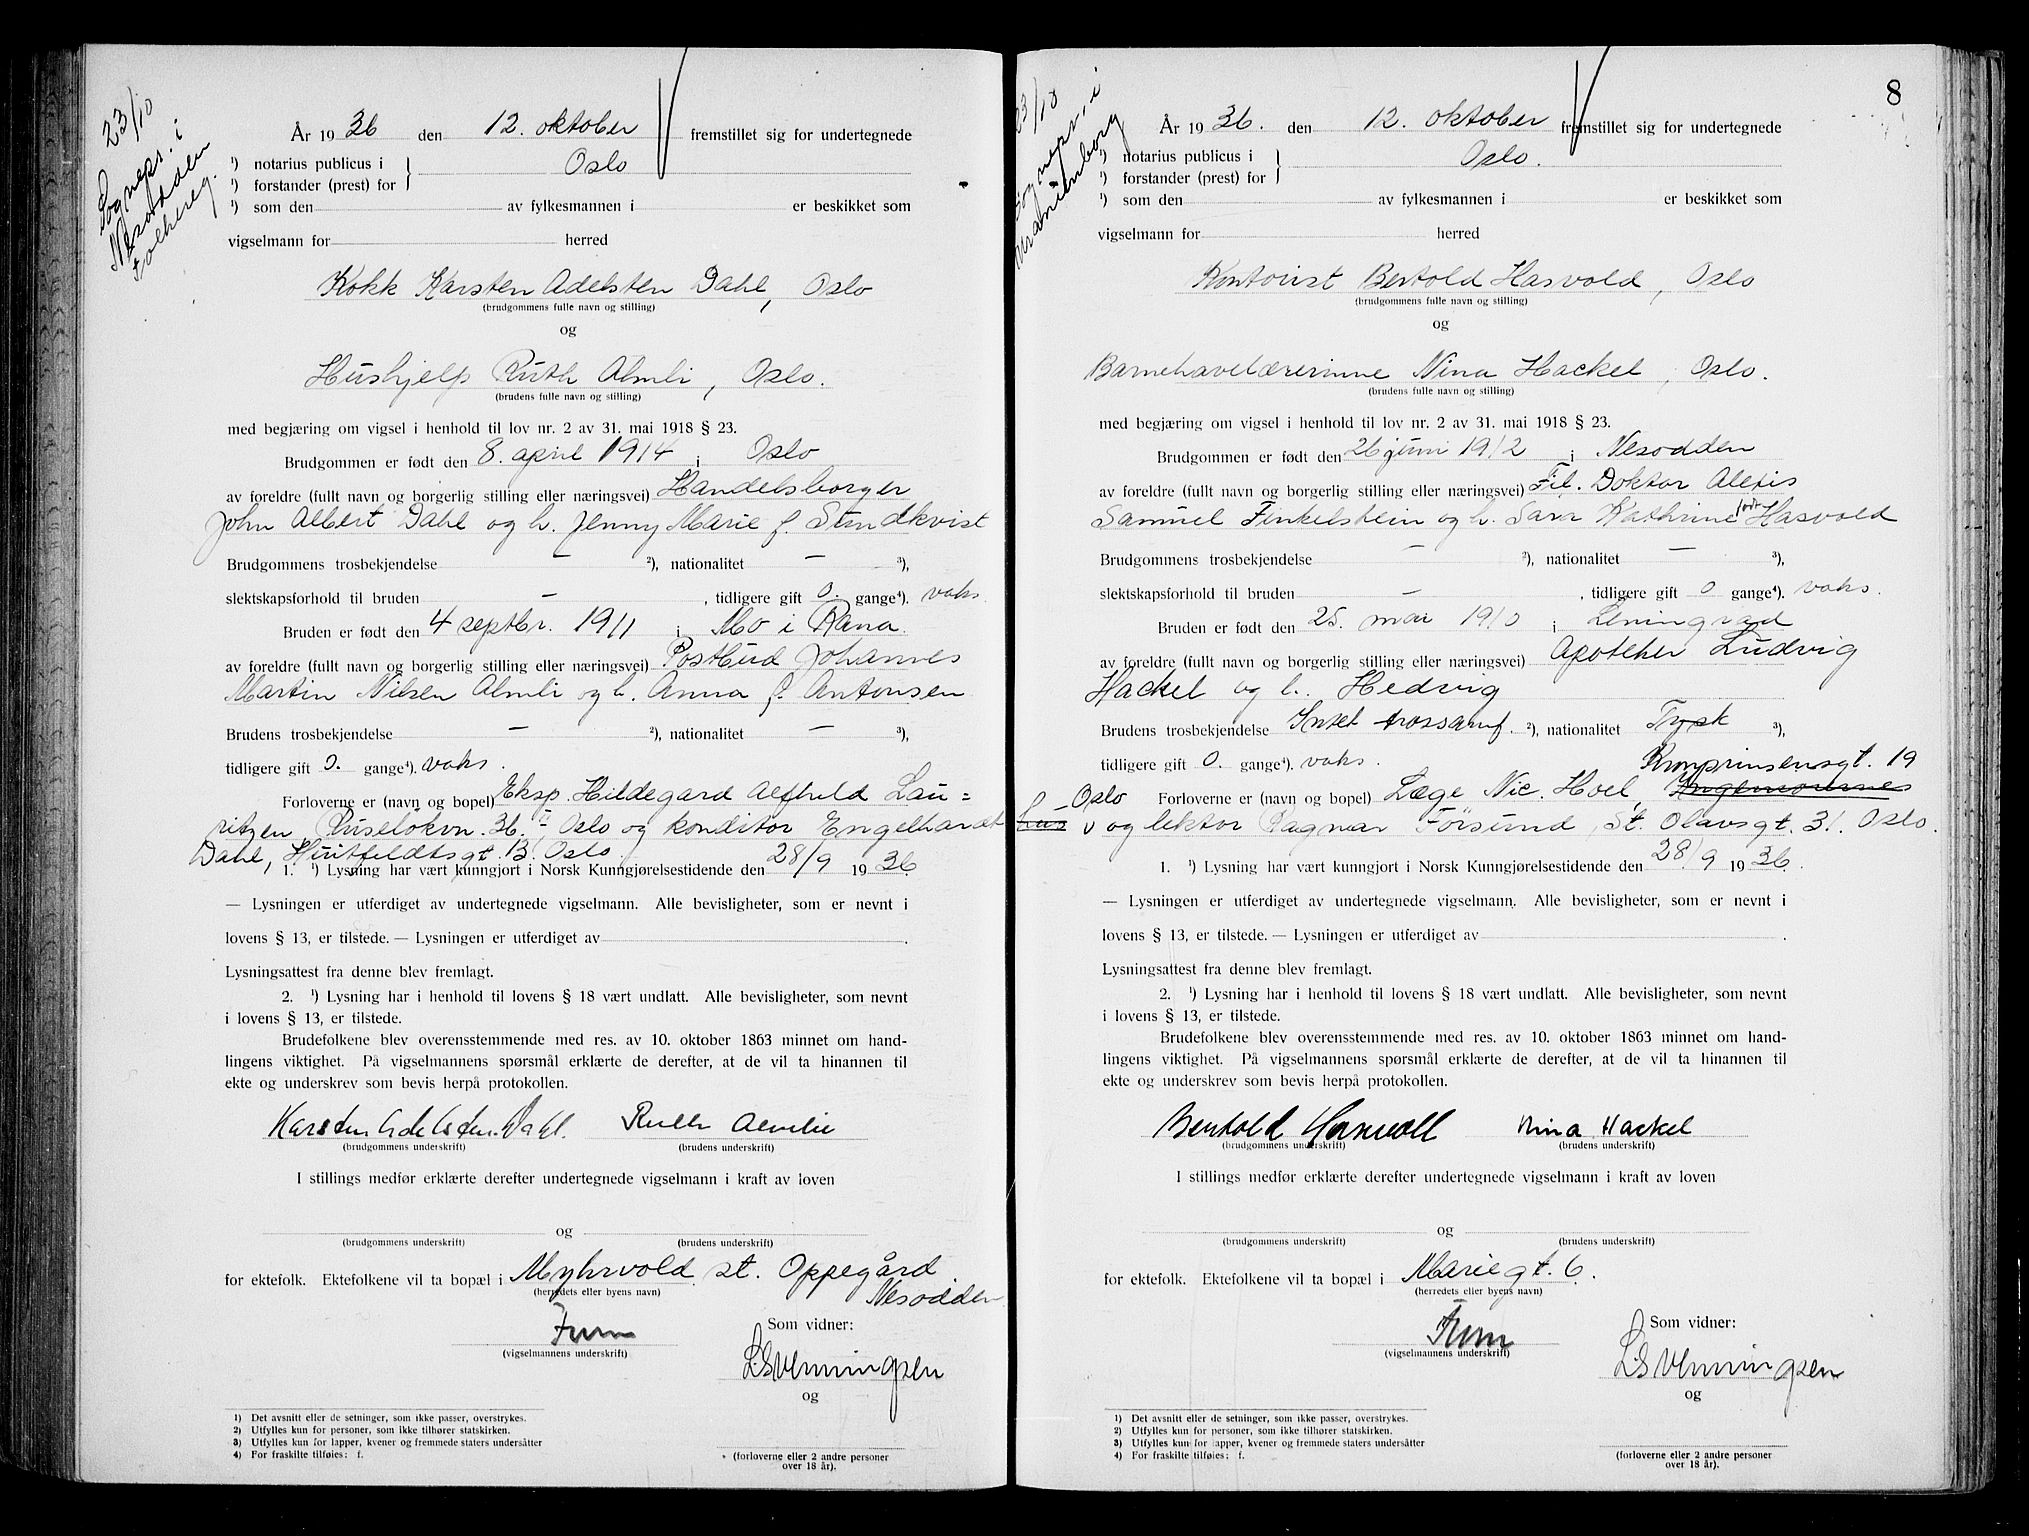 23/10
Sogneps. i
Nesodden
Folkereg.
År 1936 den 12. oktober fremstillet sig for undertegnede
¹) notarius publicus i
¹) forstander (prest) for
Oslo
¹) som den av fylkesmannen i er beskikket som
vigselmann for herred
Kokk Karsten Adelsten Dahl, Oslo
(brudgommens fulle navn og stilling)
og
Hushjelp Ruth Almli, Oslo.
(brudens fulle navn og stilling)
med begjæring om vigsel i henhold til lov nr. 2 av 31. mai 1918 § 23.
Brudgommen er født den 8. april 1914 i Oslo
av foreldre (fullt navn og borgerlig stilling eller næringsvei) Handelsborger
John Albert Dahl og h. Jenny Marie f. Sundkvist
Brudgommens trosbekjendelse — ²), nationalitet — ³),
slektskapsforhold til bruden — , tidligere gift 0. gange⁴). vaks.
Bruden er født den 4 septbr. 1911 i Mo i Rana.
av foreldre (fullt navn og borgerlig stilling eller næringsvei) Postbud Johannes
Martin Nilsen Almli og h. Anna f. Antonsen
Brudens trosbekjendelse — ²), nationalitet — ³),
tidligere gift 0. gange⁴). vaks.
Forloverne er (navn og bopel) Eksp. Hildegard Alfhild Lau=
ritzen, Ruseløkvn. 36. II Oslo og konditor Engelhardt
Dahl, Huitfeldtsgt. 13. Oslo
1. ¹) Lysning har vært kunngjort i Norsk Kunngjørelsestidende den 28/9 1936.
— Lysningen er utferdiget av undertegnede vigselmann. Alle bevisligheter, som er nevnt i
lovens § 13, er tilstede. — Lysningen er utferdiget av .
Lysningsattest fra denne blev fremlagt.
2. ¹) Lysning har i henhold til lovens § 18 vært undlatt. Alle bevisligheter, som nevnt
i lovens § 13, er tilstede.
Brudefolkene blev overensstemmende med res. av 10. oktober 1863 minnet om hand-
lingens viktighet. På vigselmannens spørsmål erklærte de derefter, at de vil ta hinannen til
ekte og underskrev som bevis herpå protokollen.
Karsten Adelsten Dahl. Ruth Almlie
(brudgommens underskrift) (brudens underskrift)
I stillings medfør erklærte derefter undertegnede vigselmann i kraft av loven
og
(brudgommens underskrift) (brudens underskrift)
for ektefolk. Ektefolkene vil ta bopæl i Myhrvold st. Oppegård
Nesodden
(herredets eller byens navn)
Som vidner:
(vigselmannens underskrift)
og
1) Det avsnitt eller de setninger, som ikke passer, overstrykes.
2) Utfylles kun for personer, som ikke tilhører statskirken.
3) Utfylles kun for lapper, kvener og fremmede staters undersåtter
4) For fraskilte tilføies: f.
(forloverne eller 2 andre personer
over 18 år).
8
23/10
Sogneps. i
Uranienborg
År 1936. den 12. oktober fremstillet sig for undertegnede
¹) notarius publicus i
¹) forstander (prest) for
Oslo.
¹) som den av fylkesmannen i er beskikket som
vigselmann for herred
Kontorist Bertold Hasvold, Oslo
(brudgommens fulle navn og stilling)
og
Barnehavelærerinne Nina Hackel, Oslo.
(brudens fulle navn og stilling)
med begjæring om vigsel i henhold til lov nr. 2 av 31. mai 1918 § 23.
Brudgommen er født den 26 juni 1912 i Nesodden
av foreldre (fullt navn og borgerlig stilling eller næringsvei) Fil. Doktor Alexis
Samuel Finkelstein og h. Sara Kathrine født Hasvold
Brudgommens trosbekjendelse — ²), nationalitet — ³),
slektskapsforhold til bruden , tidligere gift 0 gange⁴). vaks.
Bruden er født den 25. mai 1910 i Leningrad
av foreldre (fullt navn og borgerlig stilling eller næringsvei) Apoteker Ludvig
Hackel og h. Hedvig
Brudens trosbekjendelse Intet trossamf. ²), nationalitet Tysk ³),
tidligere gift 0. gange⁴). vaks. Kronprinsensgt. 19
Oslo Forloverne er (navn og bopel) Læge Nic. Hoel
og lektor Ragnar Førsund, St. Olavsgt. 31. Oslo.
1. ¹) Lysning har vært kunngjort i Norsk Kunngjørelsestidende den 28/9 1936.
— Lysningen er utferdiget av undertegnede vigselmann. Alle bevisligheter, som er nevnt i
lovens § 13, er tilstede. — Lysningen er utferdiget av .
Lysningsattest fra denne blev fremlagt.
2. ¹) Lysning har i henhold til lovens § 18 vært undlatt. Alle bevisligheter, som nevnt
i lovens § 13, er tilstede.
Brudefolkene blev overensstemmende med res. av 10. oktober 1863 minnet om hand-
lingens viktighet. På vigselmannens spørsmål erklærte de derefter, at de vil ta hinannen til
ekte og underskrev som bevis herpå protokollen.
Bertold Hasvoll Nina Hackel
(brudgommens underskrift) (brudens underskrift)
I stillings medfør erklærte derefter undertegnede vigselmann i kraft av loven
og
(brudgommens underskrift) (brudens underskrift)
for ektefolk. Ektefolkene vil ta bopæl i Mariegt. 6.
(herredets eller byens navn)
Som vidner:
(vigselmannens underskrift)
og
1) Det avsnitt eller de setninger, som ikke passer, overstrykes.
2) Utfylles kun for personer, som ikke tilhører statskirken.
3) Utfylles kun for lapper, kvener og fremmede staters undersåtter
4) For fraskilte tilføies: f.
(forloverne eller 2 andre personer
over 18 år).